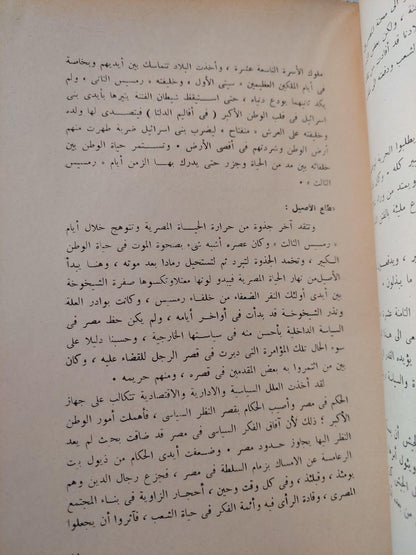 ملوك الأسرة التاسعة عشرة ، وأخذت البلاد تتماسك بين أيديهم وبخاصة
فى أيام الملكين العظيمين « سيتى الأول » وخليفته « رمسيس الثانى » ولم
يكد ثانيهما يودع دنياه ، حتى استيقظ شيطان الفتنة يثيرها بأيدى بنى
اسرائيل فى قلب الوطن الأكبر ( فى أقاليم الدلتا ) فيتصدى لها ولده
وخليفته على العرش « منفتاح » ليضرب بنى اسرائيل ضربة طهرت منهم
أرض الوطن وشردتهم فى أقصى الأرض . وتستمر حياة الوطن بين
خلفائه بين مد من الحياة وجزر ، حتى يدرك بها الزمن أيام « رمسيس
الثالث » .
طالع الأصيل :
وتتقد آخر جذوة من حرارة الحياة المصرية وتتوهج خلال أيام
« رمسيس الثالث » وكان عصره أشبه شىء بصحوة الموت فى حياة الوطن
الكبير ، وتخمد الجذوة لتبرد ثم لتستحيل رمادا بعد موته ، وهنا يبدأ
الأصيل من نهار الحياة المصرية فيبدو لونها معتلا تكسوها صفرة الشيخوخة
بين أيدى أولئك النفر الضعفاء من خلفاء رمسيس ، وكانت بوادر العلة
ونذر الشيخوخة قد بدأت فى أواخر أيامه ، ولم يكن حظ مصر فى
السياسة الداخلية بأحسن منه فى سياستها الخارجية ، وحسبنا دليلا على
سوء الحال تلك المؤامرة التى دبرت فى قصر الرجل للقضاء عليه ، وكان
بين من ائتمروا به بعض المقدمين فى قصره ، ومنهم حريمه .
لقد أخذت العلل السياسية والادارية والاقتصادية تتكالب على جهاز
الحكم فى مصر وأصيب الحكام بقصر النظر السياسى ، فأهملت أمور الوطن
الأكبر ؛ ذلك لأن آفاق الفكر السياسى فى مصر قد ضاقت بحث لم يعد
النظر اليها يجاوز حدود مصر . وضعفت أيدى الحكام من ذيول بيت
الرعامسة عن الامساك بزمام السلطة فى مصر ، فجزع رجال الدين وهم
يومئذ ، وقبلئذ ، وفى كل وقت وحين ، أحجار الزاوية فى بناء المجتمع
المصرى ، وقادة الرأى فيه وأئمة الفكر فى حياة الشعب ، فآثروا أن يجعلوا